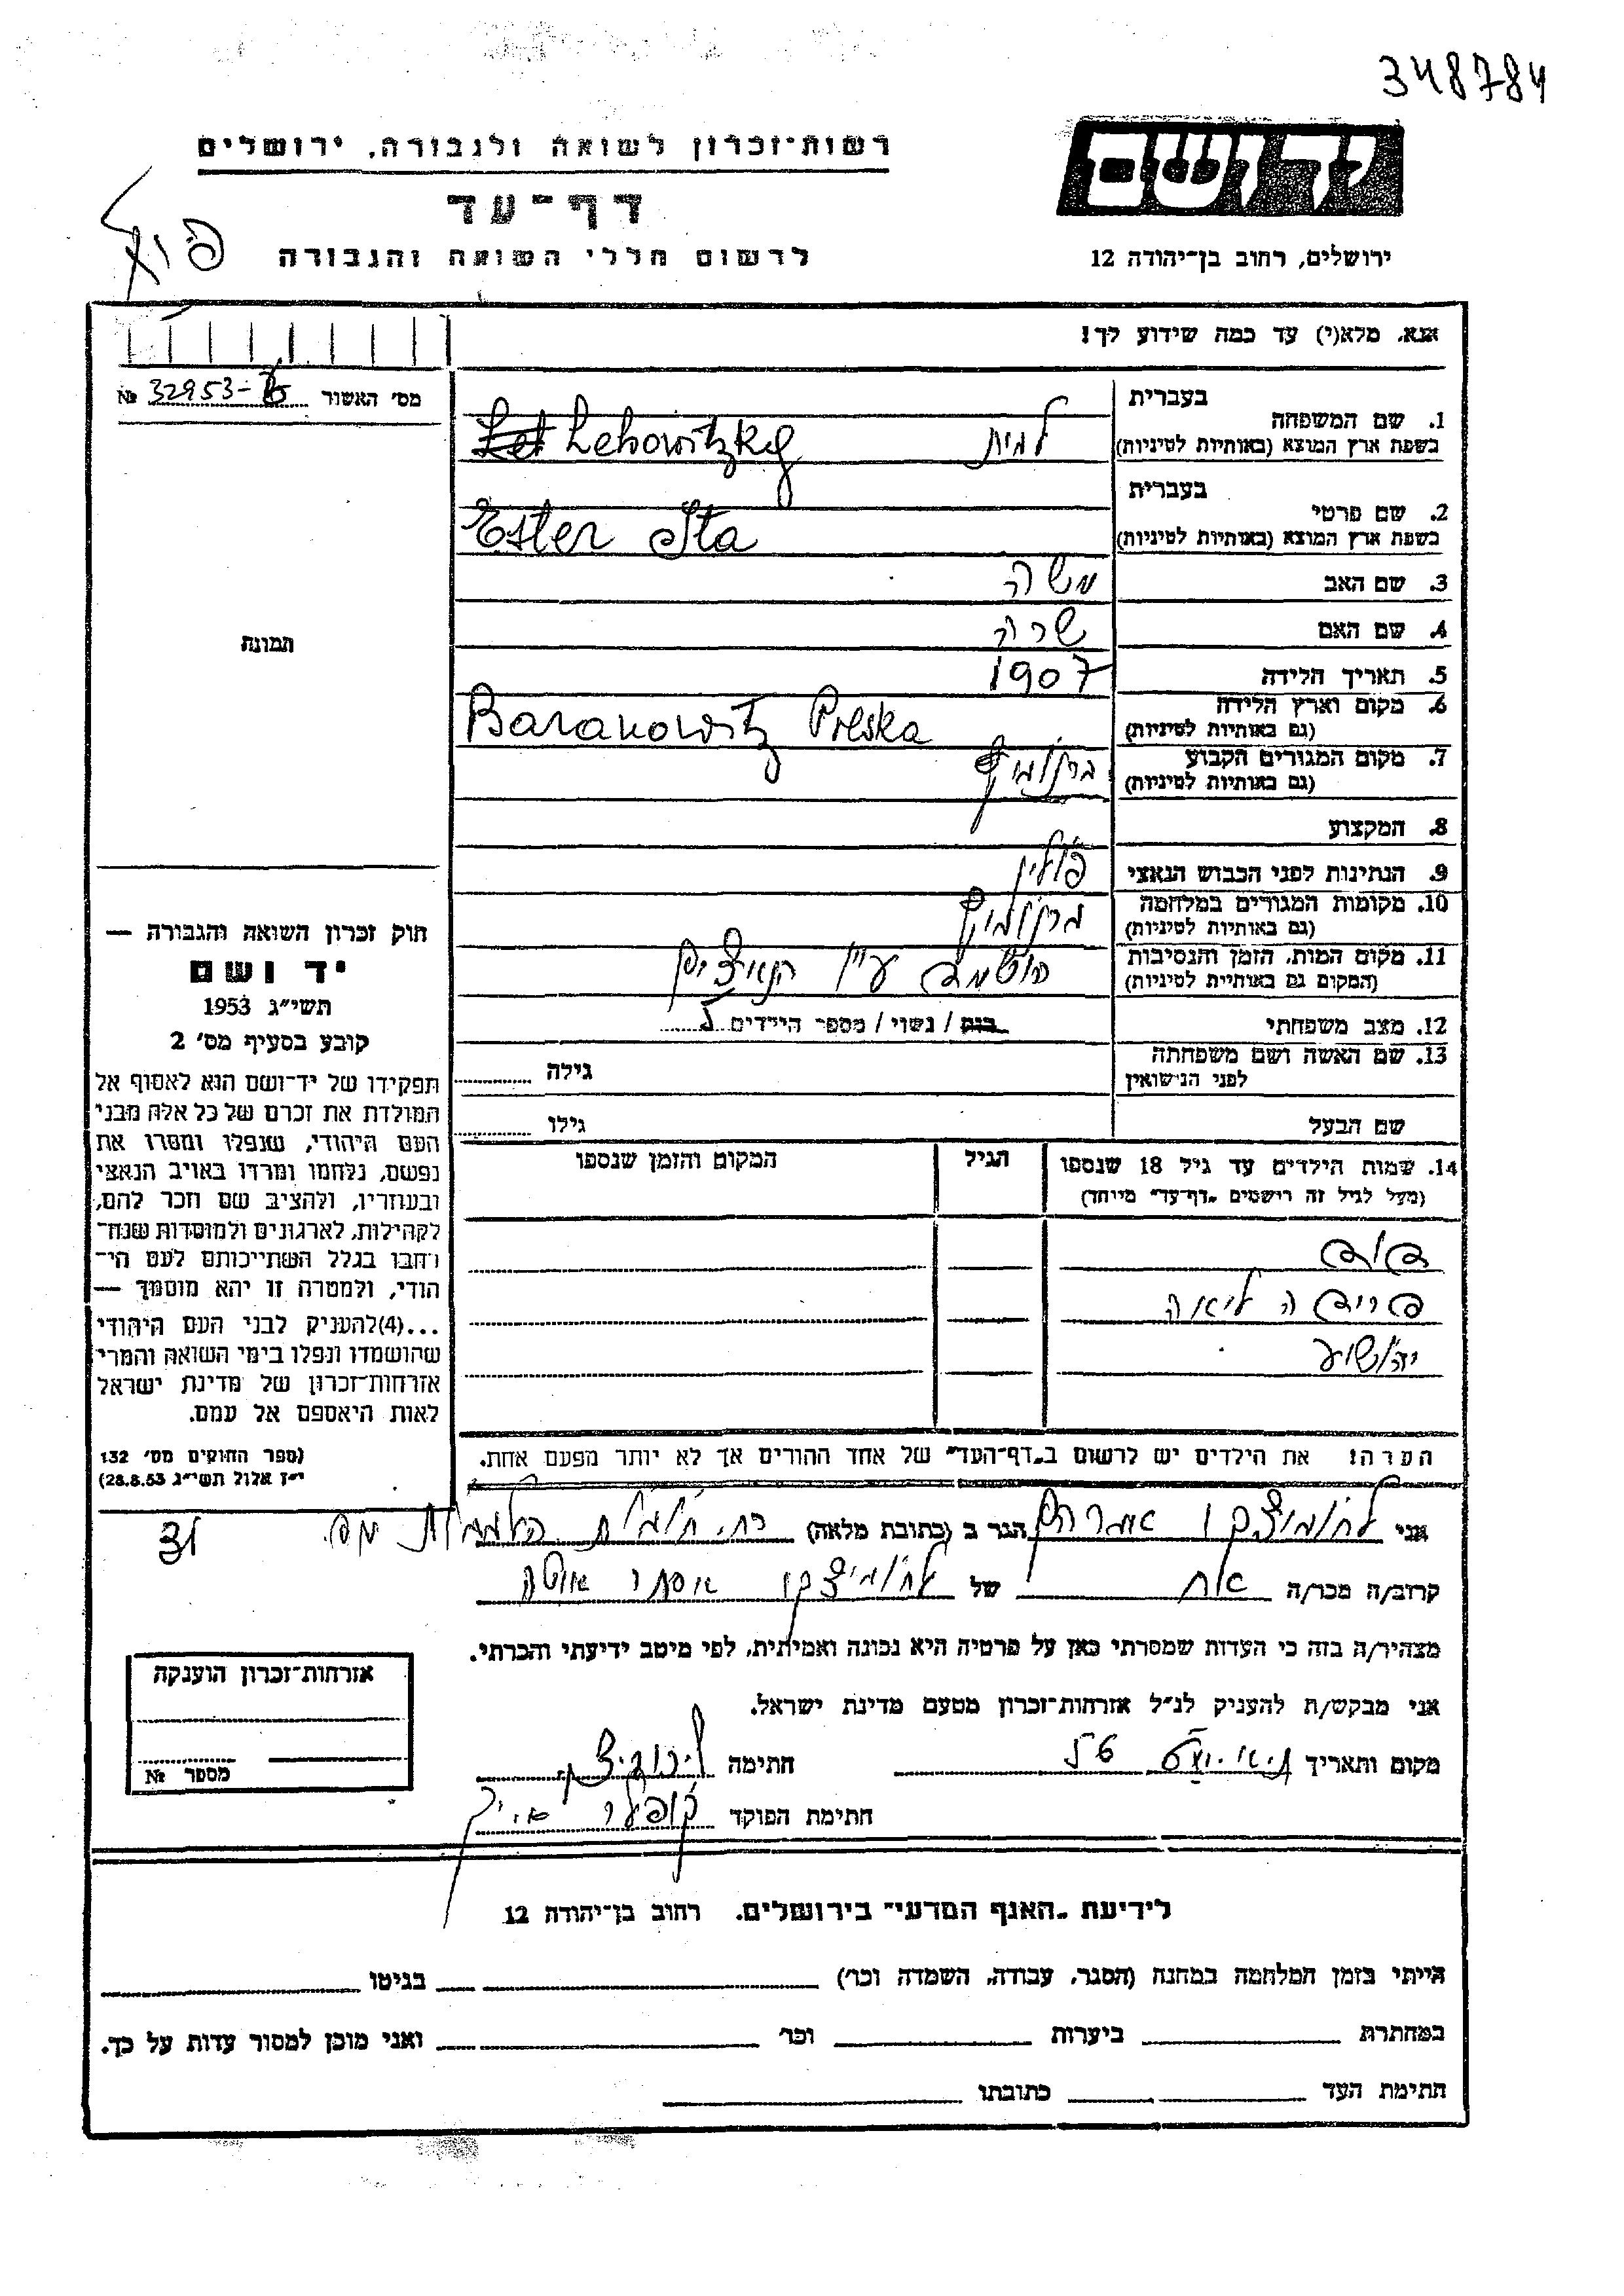 348784
רשות־זכרון לשואה ולגבורה, ירושלים
דף־עד
לרשום חללי השואה והגבורה
יד ושם
ירושלים, רחוב בן־יהודה 12
אנא, מלא(י) עד כמה שידוע לך!
מס׳ האשור 32953- №
תמונה
חוק זכרון השואה והגבורה —
יד ושם
תשי״ג 1953
קובע בסעיף מס׳ 2
תפקידו של יד־ושם הוא לאסוף אל
המולדת את זכרם של כל אלה מבני
העם היהודי, שנפלו ומסרו את
נפשם, נלחמו ומרדו באויב הנאצי
ובעוזריו, ולהציב שם וזכר להם,
לקהילות, לארגונים ולמוסדות שנח־
רחבו בגלל השתייכותם לעם הי־
הודי, ולמטרה זו יהא מוסמך —
...(4)להעניק לבני העם היהודי
שהושמדו ונפלו בימי השואה והמרי
אזרחות־זכרון של מדינת ישראל
לאות היאספם אל עמם.
(ספר החוקים מס׳ 132
י״ז אלול תשי״ג 28.8.53)
1. שם המשפחה בעברית
בשפת ארץ המוצא (באותיות לטיניות) Lehowitzky
2. שם פרטי בעברית
בשפת ארץ המוצא (באותיות לטיניות) Ester Ita
3. שם האב משה
4. שם האם שרה
5. תאריך הלידה 1907
6. מקום וארץ הלידה
(גם באותיות לטיניות) Baranowitz Polska
7. מקום המגורים הקבוע
(גם באותיות לטיניות) ברנוביץ
8. המקצוע
9. הנתינות לפני הכבוש הנאצי פולין
10. מקומות המגורים במלחמה
(גם באותיות לטיניות) ברנוביץ
11. מקום המות, הזמן והנסיבות
(המקום גם באותיית לטיניות) הושמד ע״י הנאצים
12. מצב משפחתי רוק / נשוי / מספר הילדים
13. שם האשה ושם משפחתה
לפני הנישואין גילה
שם הבעל גילו
14. שמות הילדים עד גיל 18 שנספו הגיל המקום והזמן שנספו
(מעל לגיל זה רישמים „דף־עד״ מיוחד)
דוד
פרידה ליאה
יהושוע
הערה: את הילדים יש לרשום ב„דף־העד״ של אחד ההורים אך לא יותר מפעם אחת.
אני לחוביצקי אברהם הגר ב (כתובת מלאה) רח. חומות הלממות מס. 31
קרוב/ה מכר/ה אח של לחוביצקי אסתר איטה
מצהיר/ה בזה כי העדות שמסרתי כאן על פרטיה היא נכונה ואמיתית, לפי מיטב ידיעתי והכרתי.
אני מבקש/ת להעניק לנ״ל אזרחות־זכרון מטעם מדינת ישראל.
מקום ותאריך חתימה
חתימת הפוקד
אזרחות־זכרון הוענקה
מספר №
לידיעת „האגף המדעי״ בירושלים, רחוב בן־יהודה 12
הייתי בזמן המלחמה במחנה (הסגר, עבודה, השמדה וכר׳) בגיטו
במחתרת ביערות וכר׳ ואני מוכן למסור עדות על כך.
חתימת העד כתובתו